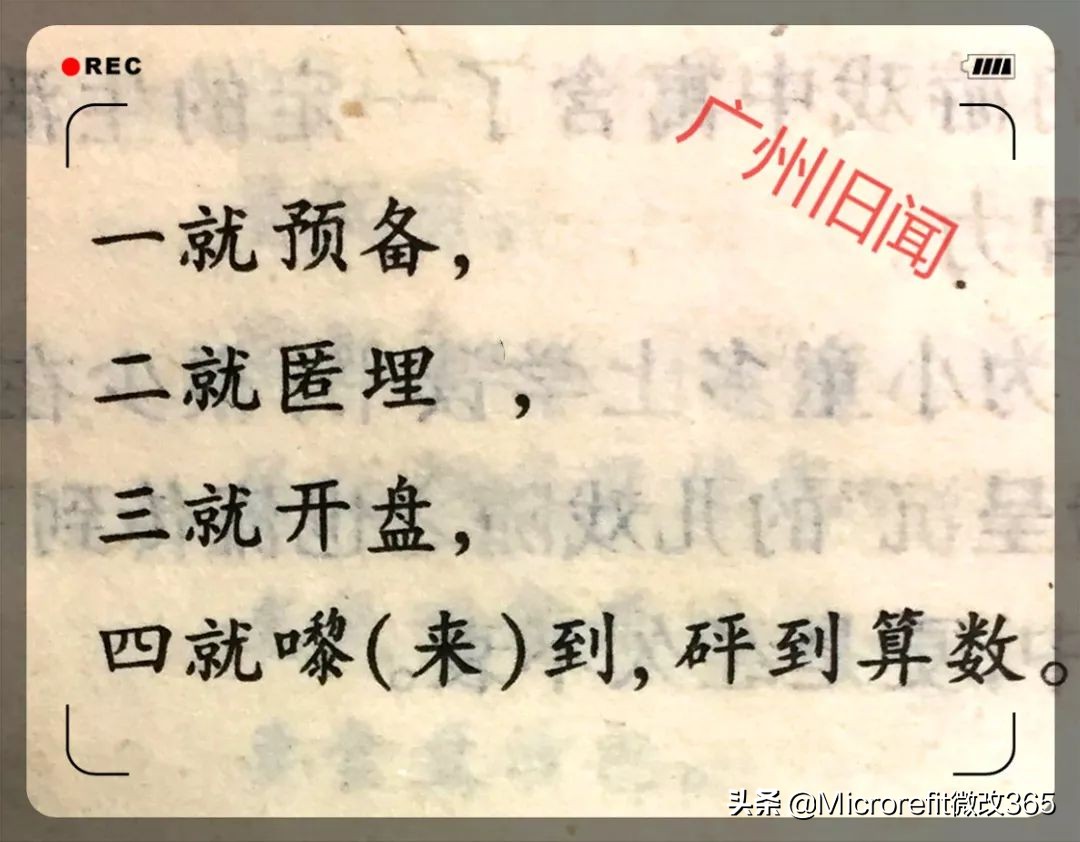 REC
广州旧闻
一就预备，
二就匿埋 ，
三就开盘，
四就嚟(来)到，砰到算数。
头条 @Microrefit微改365